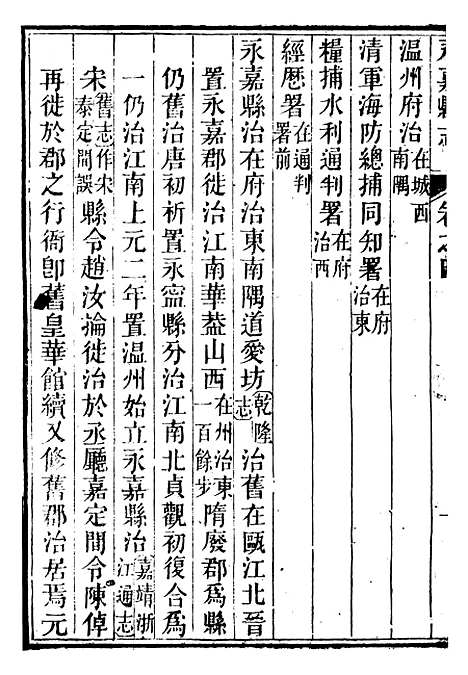 永嘉縣志　卷之四
溫州府治在城西南隅
清軍海防總捕同知署在府治東
糧捕水利通判署在府治西
經歷署在通判署前
永嘉縣治在府治東南隅道愛坊乾隆志治舊在甌江北晉
置永嘉郡徙治江南華葢山西在州治東一百餘步隋廢郡爲縣
仍舊治唐初析置永寧縣分治江南北貞觀初復合爲
一仍治江南上元二年置温州始立永嘉縣治嘉靖浙江通志
宋舊志作宋泰定間誤縣令趙汝掄徙治於丞廳嘉定間令陳倬
再徙於郡之行衙卽舊皇華館續又修舊郡治居焉元